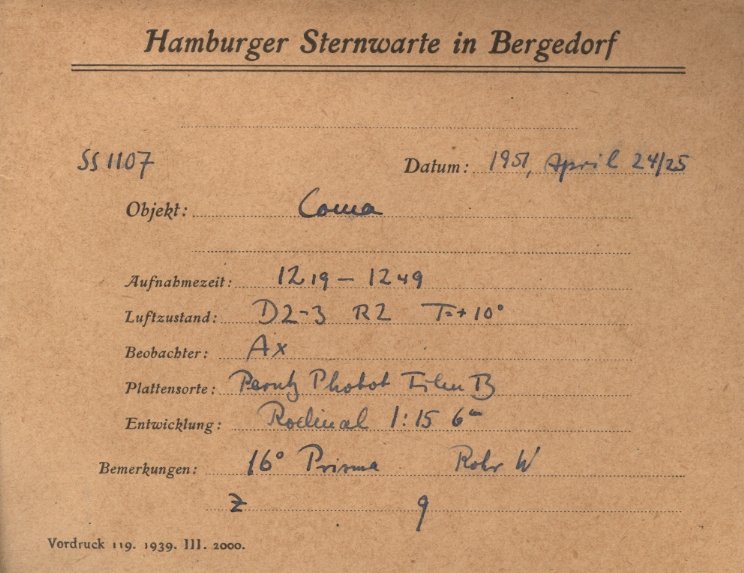 Hamburger Sternwarte in Bergedorf
SS 1107 Datum: 1951, April 24/25
Objekt: Coma
Aufnahmezeit: 12 19 – 12 49
Luftzustand: D2-3 R2 T=+10°
Beobachter: Ax
Plattensorte: Perutz Phobot Film B
Entwicklung: Rodinal 1:15 6m
Bemerkungen: 16° Prisma Rohr W
Z g
Vordruck 119. 1939. III. 2000.